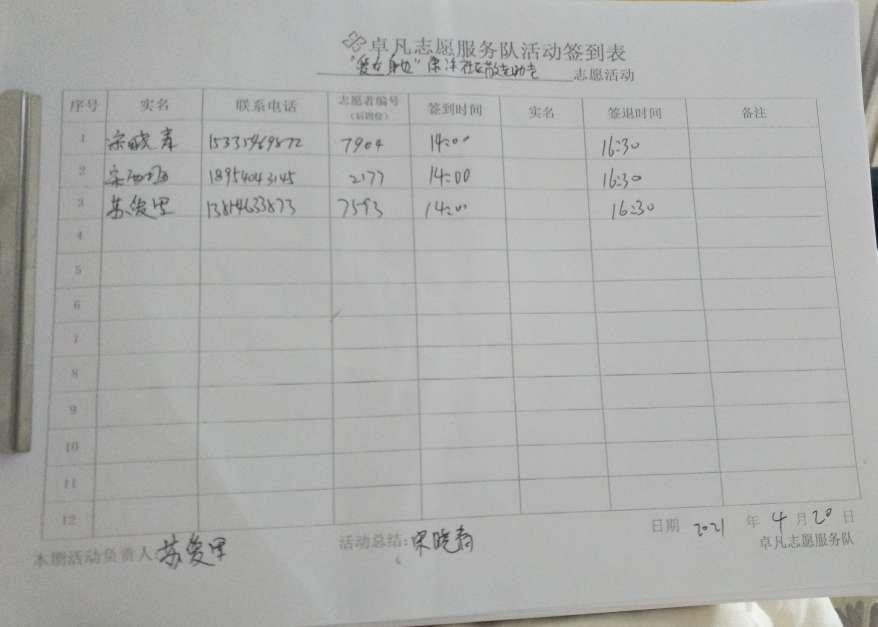 卓凡志愿服务队活动签到表
志愿活动
序号 实名 联系电话 志愿者编号 签到时间 实名 签退时间 备注
（后四位）
1 宋晓青 15331469872 7904 14:00 16:30
2 宋 18954043145 2177 14:00 16:30
3 苏俊 13814633873 7593 14:00 16:30
4
5
6
7
8
9
10
11
12
日期 2021 年 4 月 20 日
本期活动负责人:苏俊 活动总结:宋晓青 卓凡志愿服务队